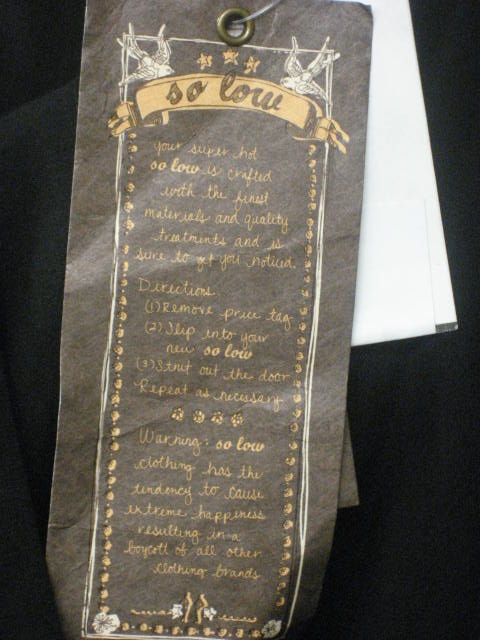 so low
your super hot
so low is crafted
with the finest
materials and quality
treatments and is
sure to get you noticed.
Directions:
(1) Remove price tag
(2) Slip into your
new so low
(3) Strut out the door
Repeat as necessary
Warning: so low
clothing has the
tendency to cause
extreme happiness
resulting in a
boycott of all other
clothing brands